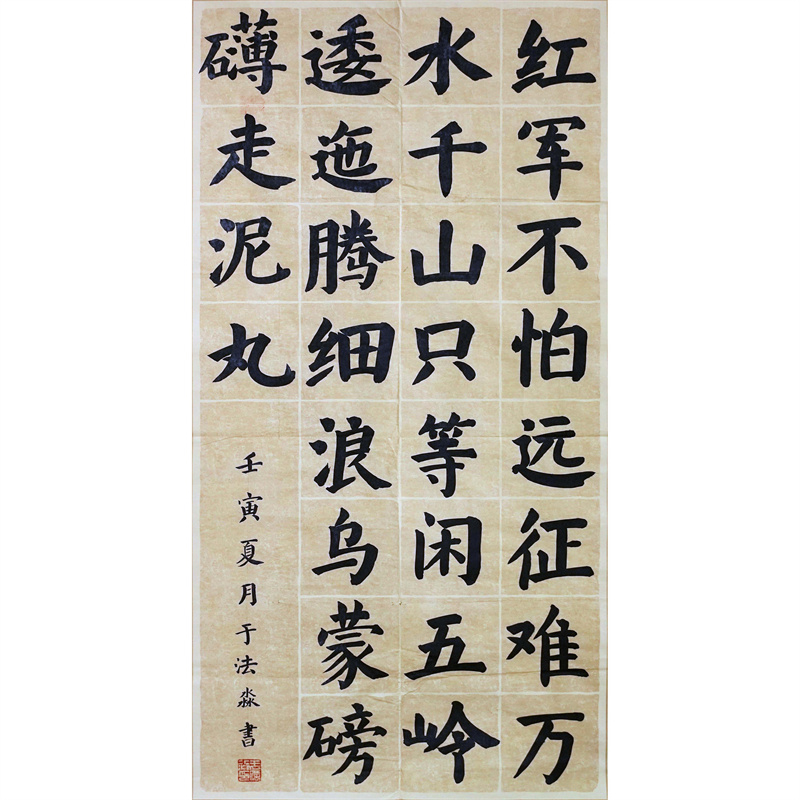 红军不怕远征难万
水千山只等闲五岭
逶迤腾细浪乌蒙磅
礴走泥丸
壬寅夏月于法淼书